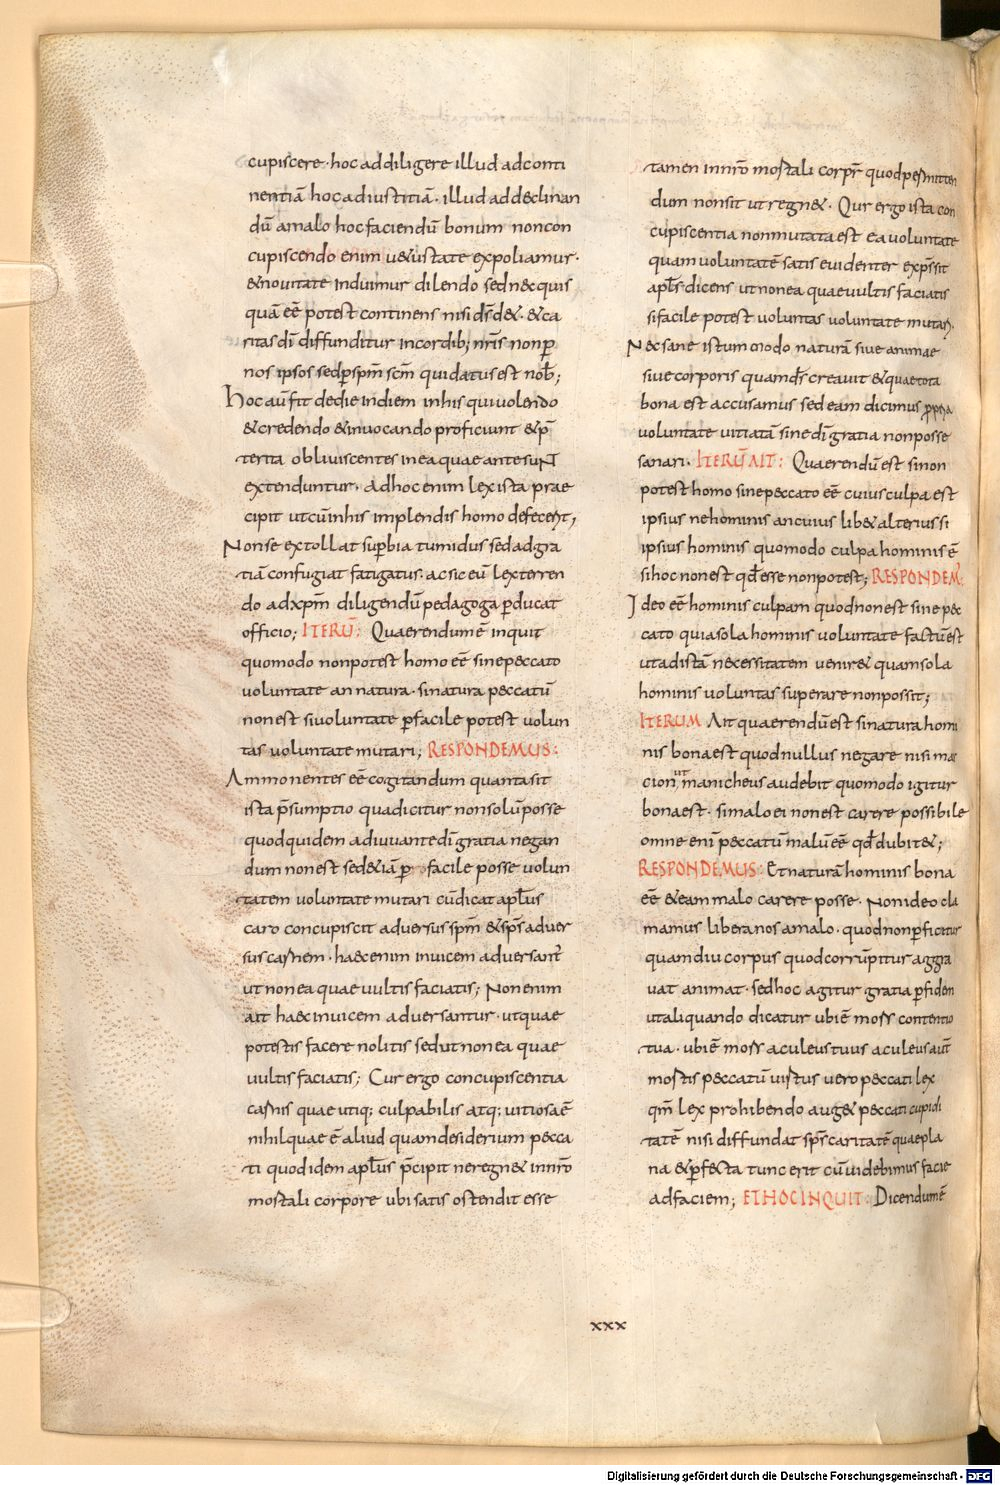 cupiscere · hoc ad diligere illud ad conti
nentiā hoc ad iustitiā · illud ad declinan
dū a malo hoc faciendū bonum non con
cupiscendo enim uetustate expoliamur ·
& nouitate induimur dilendo sed nec quis
quā eē potest continens nisi d̄s det · & ca
ritas dī diffunditur in cordib; nr̄is non ꝑ
nos ipsos sed ꝑ sp̄m sc̄m qui datus est nob̄;
Hoc aūt fit de die in diem in his qui uolendo
& credendo & inuocando proficiunt & p̄
terita obliuiscentes in ea quae ante sunt
extenduntur · Ad hoc enim lex ista prae
cipit ut cū in his implendis homo defecerit,
Non se extollat suꝑbia tumidus sed ad gra
tiā confugiat fatigatus · ac sic eū lex terren
do ad xp̄m diligendū pedagoga ꝑducat
officio; ITERŪ: Quaerendum ē inquit
quomodo non potest homo eē sine peccato
uoluntate an natura · si natura peccatū
non est si uoluntate ꝑ facile potest uolun
tas uoluntate mutari; RESPONDEMUS:
Ammonentes eē cogitandum quanta sit
ista p̄sumptio qua dicitur non solū posse
quod quidem adiuuante dī gratia negan
dum non est sed & iā ꝑ facile posse uolun
tatem uoluntate mutari cū dicat apl̄us
caro concupiscit aduersus sp̄m & sp̄s aduer
sus carnem · haec enim inuicem aduersant̄
ut non ea quae uultis faciatis; Non enim
ait haec inuicem aduersantur · ut quae
potestis facere nolitis sed ut non ea quae
uultis faciatis; Cur ergo concupiscentia
carnis quae utiq; culpabilis atq; uitiosa ē
nihil quae ē aliud quam desiderium pecca
ti quod idem apl̄us p̄cipit ne regnet in nr̄o
mortali corpore ubi satis ostendit esse
tamen in nr̄o mortali corpr̄ quod permitten
dum non sit ut regnet · Qur ergo ista con
cupiscentia non mutata est ea uoluntate
quam uoluntatē satis euidenter exp̄ssit
apl̄s · dicens ut non ea quae uultis faciatis
si facile potest uoluntas uoluntate mutari.
Nec sane isto modo naturā siue animae
siue corporis quam d̄s creauit & quae tota
bona est accusamus sed eam dicimus propria
uoluntate uitiatā sine dī gratia non posse
sanari · ITERŪ AIT: Quaerendū est si non
potest homo sine peccato eē cuius culpa est
ipsius ne hominis an cuius libet alterius si
ipsius hominis quomodo culpa hominis ē
si hoc non est qd̄ esse non potest; RESPONDEM̄:
Ideo eē hominis culpam quod non est sine pec
cato quia sola hominis uoluntate factū est
ut ad istā necessitatem ueniret quam sola
hominis uoluntas superare non possit;
ITERUM Ait quaerendū est si natura homi
nis bona est quod nullus negare nisi mar
cion ut manicheus audebit quomodo igitur
bona est · si malo ei non est carere possibile
omne eni peccatū malū eē qd̄ dubitet;
RESPONDEMUS: Et naturā hominis bona
eē & eam malo carere posse · Non ideo cla
mamus libera nos a malo · quod non ꝑficitur
quamdiu corpus quod corrūpitur aggra
uat animat · sed hoc agitur gratia ꝑ fidem
ut aliquando dicatur ubi ē mors contentio
tua · ubi ē mors aculeus tuus aculeus aūt
mortis peccatū uirtus uero peccati lex
qm̄ lex prohibendo auget peccati cupidi
tatē nisi diffundat sp̄s caritatē quae ple
na & ꝑfecta tunc erit cū uidebimus facie
ad faciem; ET HOC INQUIT: Dicendum ē
xxx
Digitalisierung gefördert durch die Deutsche Forschungsgemeinschaft - DFG